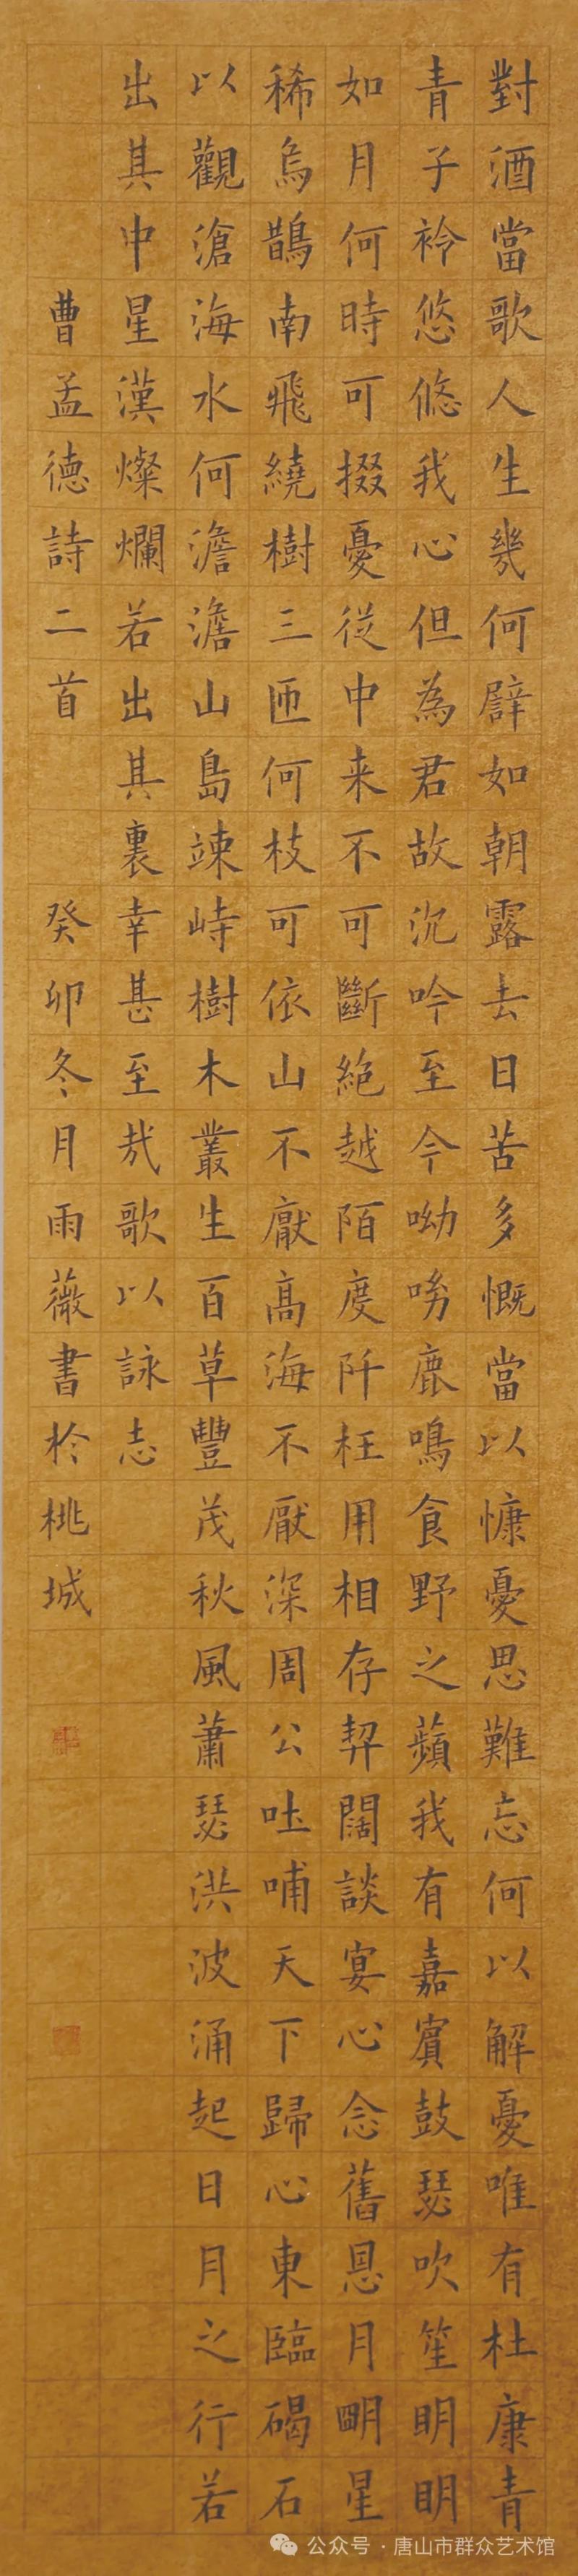 對酒當歌人生幾何譬如朝露去日苦多慨當以慷憂思難忘何以解憂唯有杜康青
青子衿悠悠我心但為君故沉吟至今呦呦鹿鳴食野之蘋我有嘉賓鼓瑟吹笙明明
如月何時可掇憂從中来不可斷絕越陌度阡枉用相存契闊談宴心念舊恩月明星
稀烏鵲南飛繞樹三匝何枝可依山不厭高海不厭深周公吐哺天下歸心東臨碣石
以觀滄海水何澹澹山島竦峙樹木叢生百草豐茂秋風蕭瑟洪波涌起日月之行若
出其中星漢燦爛若出其裏幸甚至哉歌以詠志
曹孟德詩二首 癸卯冬月雨薇書於桃城
公众号 · 唐山市群众艺术馆